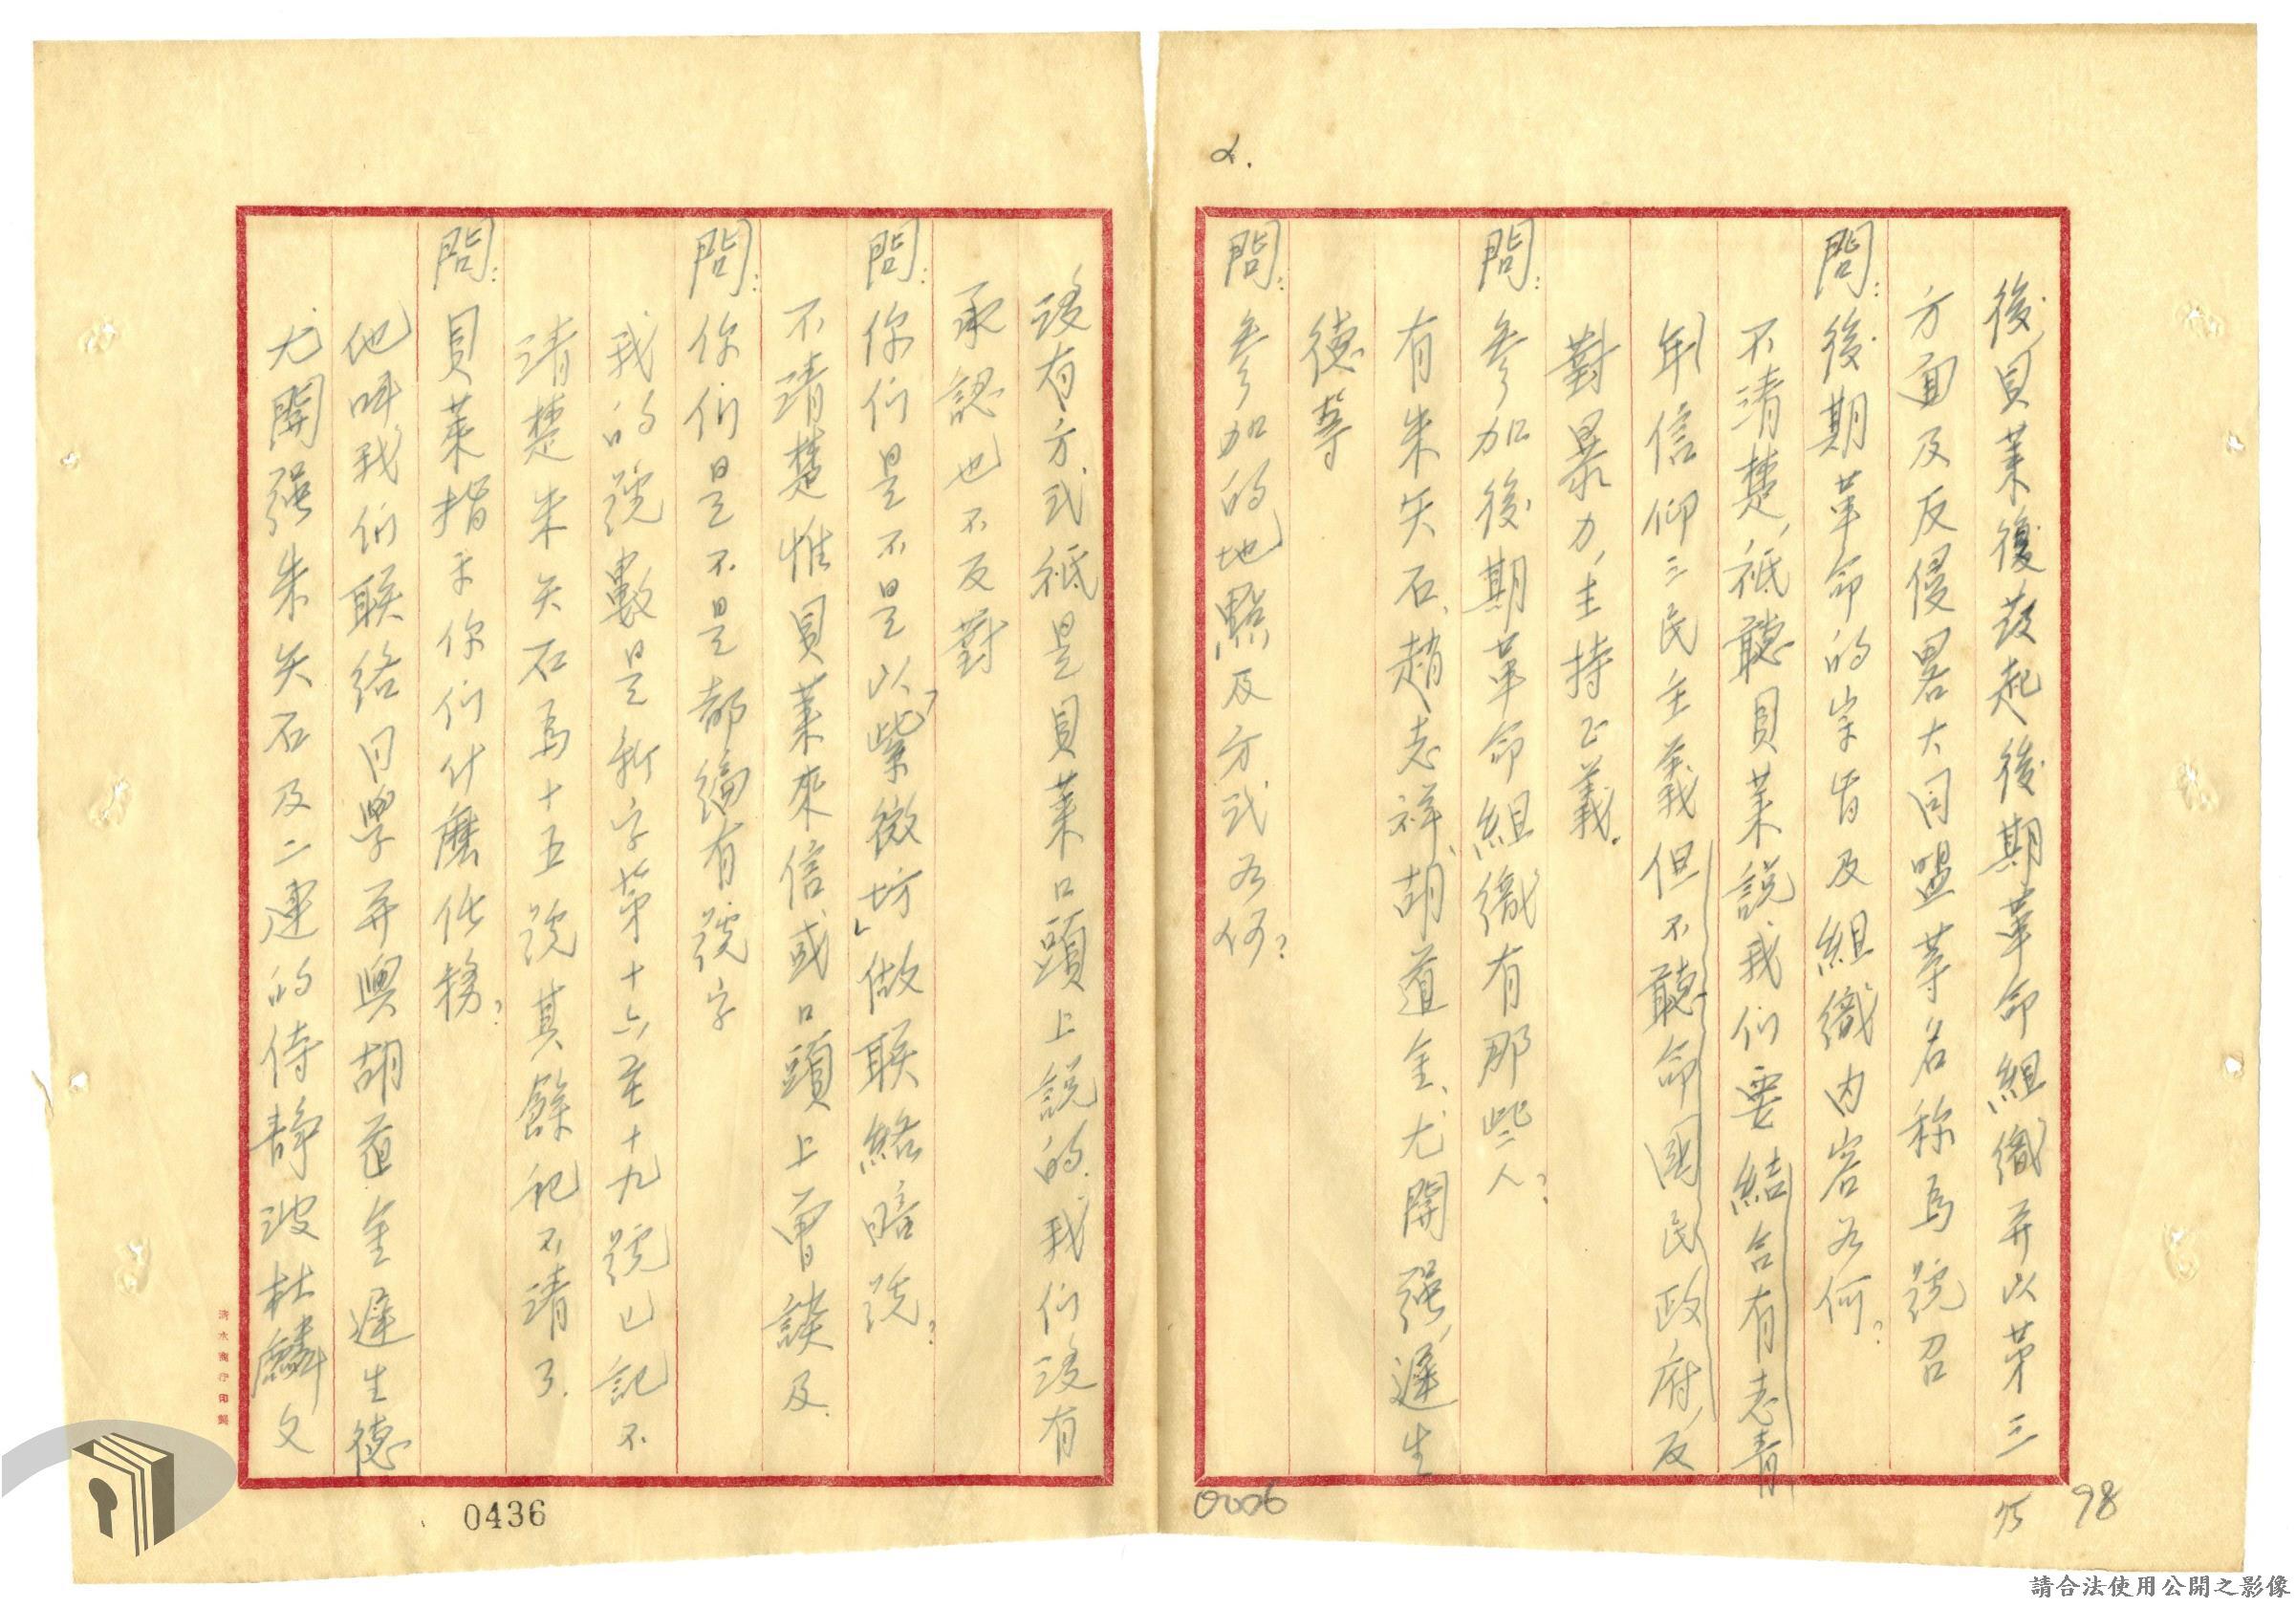 2.
後貝萊後發起後期革命組織并以第三
方面及反侵畧大同盟等名称為號召
問：後期革命的宗旨及組織内容為何？
不清楚，祇聽貝萊說，我们要結合有志青
年信仰三民主義但不聽命國民政府，反
對暴力，主持正義。
問：參加後期革命組織有那些人？
有朱矢石、趙志祥、胡道金、尤開强，遲生
德等
問：參加的地點及方式為何？
沒有方式祇是貝萊口頭上說的，我们沒有
承認也不反對
問：你们是不是以「紫微坊」做联絡暗號？
不清楚惟貝萊來信或口頭上曾談及。
問：你们是不是都編有號字
我的號數是新字第十六至十九號已記不
清楚朱矢石為十五號其餘記不清了。
問：貝萊指示你们什麼任務？
他叫我们联络同學并與胡道金遲生德
尤開强朱矢石及二連的侍靜波杜麟文
98
0006
0436
請合法使用公開之影像